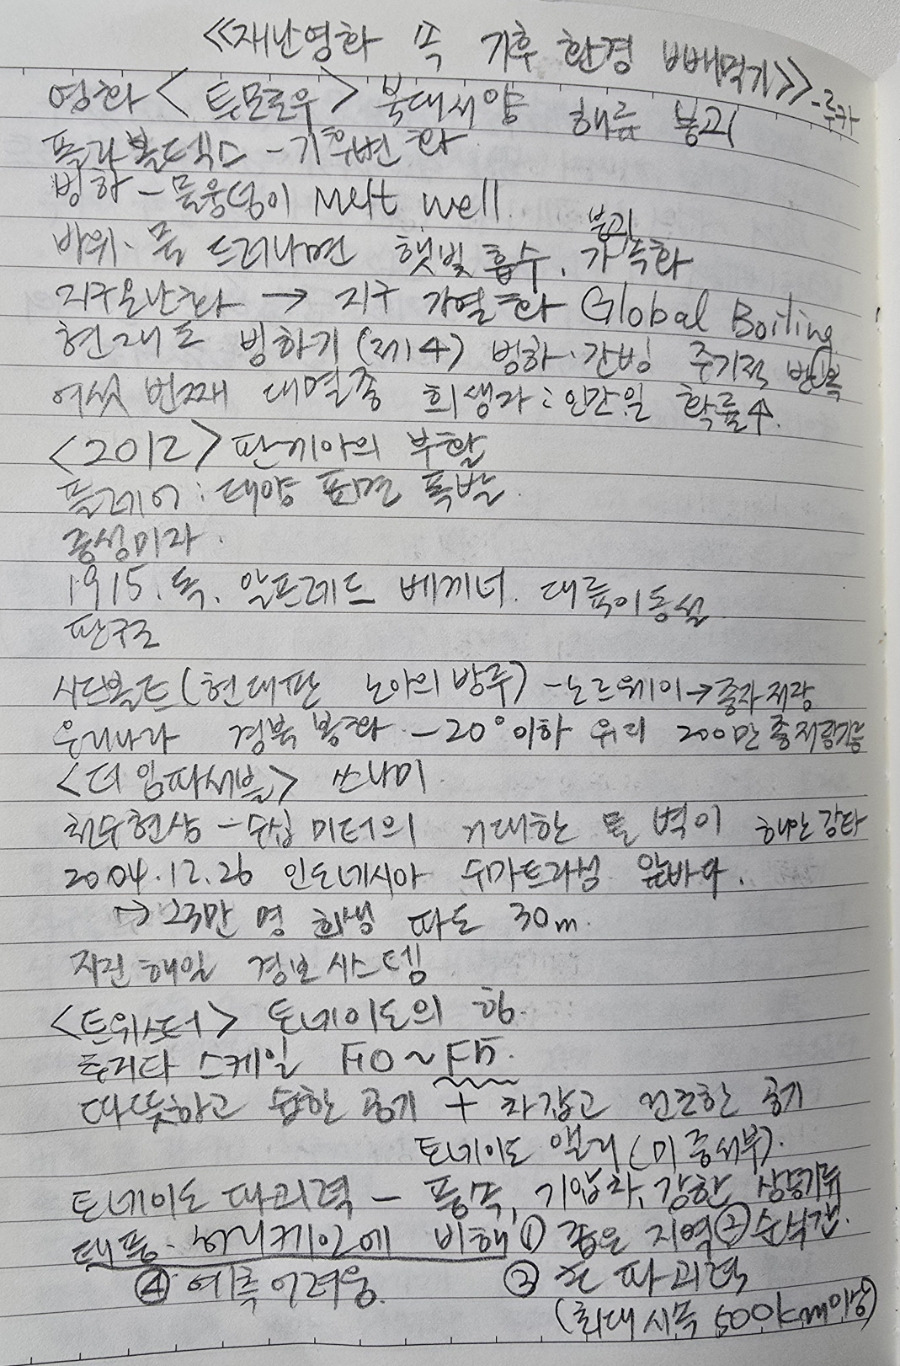 <<재난영화 쏙 기후 환경 빼먹기>> -루카
영화 <투모로우> 북대서양 해류 붕괴
폴라볼텍스 - 기후변화
빙하 - 물웅덩이 Melt well.
바위·물 드러나면 햇빛 흡수. 붕괴 가속화
지구온난화 → 지구 가열화 Global Boiling
현재도 빙하기(제4) 빙하·간빙 주기적 반복
여섯 번째 대멸종 희생자: 인간일 확률↑.
<2012> 판게아의 부활
플레어: 태양 표면 폭발.
중성미자.
1915. 독. 알프레드 베게너. 대륙이동설
판구조
시드볼트(현대판 노아의 방주) - 노르웨이→종자저장
우리나라 경북 봉화. -20° 이하 유지 200만 종저장가능
<더 임파서블> 쓰나미.
해수현상 - 수십 미터의 거대한 물 벽이 해안 강타
2004.12.26 인도네시아 수마트라섬 앞바다.
→ 23만 명 희생 파도 30m.
지진해일 경보시스템
<트위스터> 토네이도의 힘.
후지타 스케일 F0 ~ F5.
따뜻하고 습한 공기 + 차갑고 건조한 공기
토네이도 앨리(미 중서부).
토네이도 파괴력 - 풍속, 기압차, 강한 상승기류
태풍·허리케인에 비해 ① 좁은 지역 ② 순식간.
④ 예측 어려움. ③ 큰 파괴력
(최대 시속 500km이상)